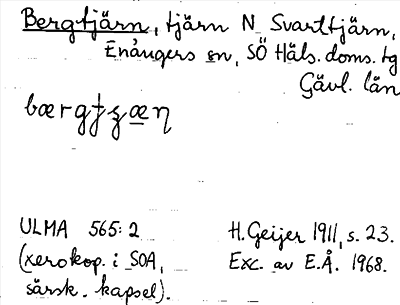 Bergtjärn, tjärn N Svarttjärn,
Enångers sn, SÖ Häls. doms. tg
Gävl. län
ULMA 565:2
(xerokop. i SOA,
särsk. kapsel).
H. Geijer 1911, s. 23.
Exc. av E.Å. 1968.